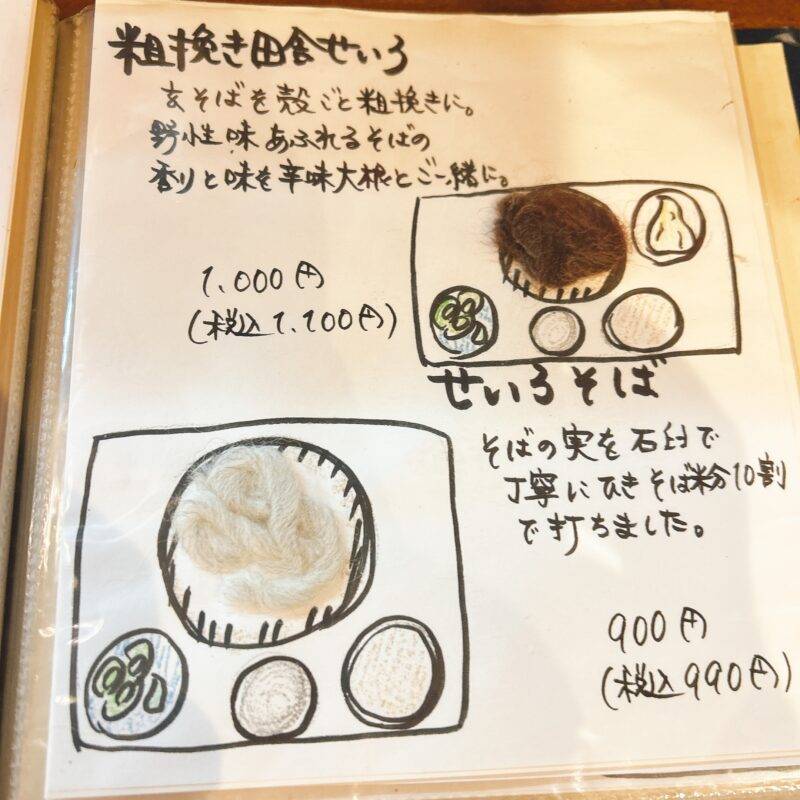 粗挽き田舎せいろ
玄そばを殻ごと粗挽きに。
野性味あふれるそばの
香りと味を辛味大根とご一緒に。
1,000円
(税込1,100円)
せいろそば
そばの実を石臼で
丁寧にひきそば粉10割
で打ちました。
900円
(税込990円)